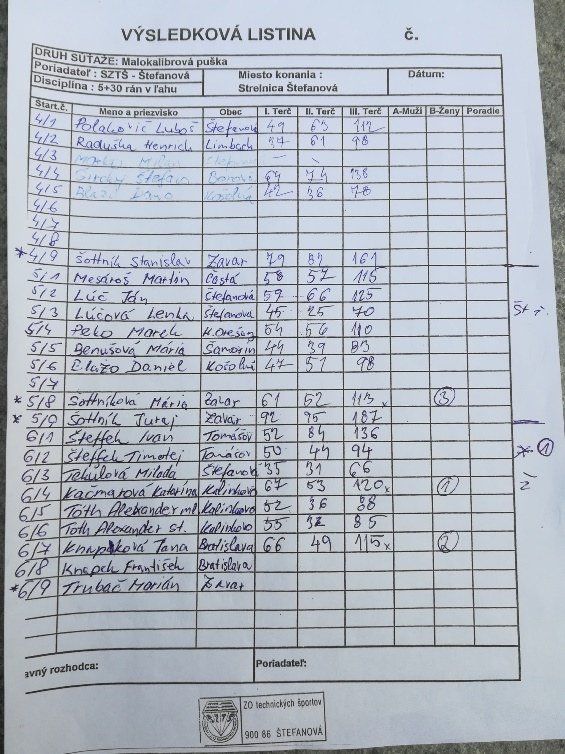 VÝSLEDKOVÁ LISTINA č.
DRUH SÚŤAŽE: Malokalibrová puška
Poriadateľ : SZTŠ - Štefanová Miesto konania : Dátum:
Disciplína : 5+30 rán v ľahu Strelnica Štefanová
Štart.č. Meno a priezvisko Obec I. Terč II. Terč III. Terč A-Muži B-Ženy Poradie
4/1 Polakovič Luboš Štefanová 49 63 112
4/2 Raduška Henrich Limbach 37 61 98
4/3 Milan — \
4/4 Štefan 64 74 138
4/5 42 36 78
4/6
4/7
4/8
* 4/9 Šottník Stanislav Zavar 79 82 161
5/1 Mesároš Martin Častá 58 57 115
5/2 Lúč Ján Štefanová 59 66 125
5/3 Lúčová Lenka Štefanová 45 25 70
5/4 Peko Marek H.Orešany 54 56 110
5/5 Benušová Mária Šamorín 44 39 83
5/6 Blažo Daniel 47 51 98
5/7
* 5/8 Šottníková Mária Zavar 61 52 113 x 3
* 5/9 Šottník Juraj Zavar 92 95 187
6/1 Šteffek Ivan Tomášov 52 84 136
6/2 Šteffek Timotej Tomášov 50 44 94 1
6/3 Tekúlová Milada Štefanová 35 31 66
6/4 Kačmárová Katarína Kalinkovo 67 53 120 x 1
6/5 Tóth Alexander ml. Kalinkovo 52 36 88
6/6 Tóth Alexander st. Kalinkovo 55 32 85
6/7 Jana Bratislava 66 49 115 x 2
6/8 Knapek František Bratislava
* 6/9 Trubač Marián Zavar
avný rozhodca: Poriadateľ:
ZO technických športov
900 86 ŠTEFANOVÁ